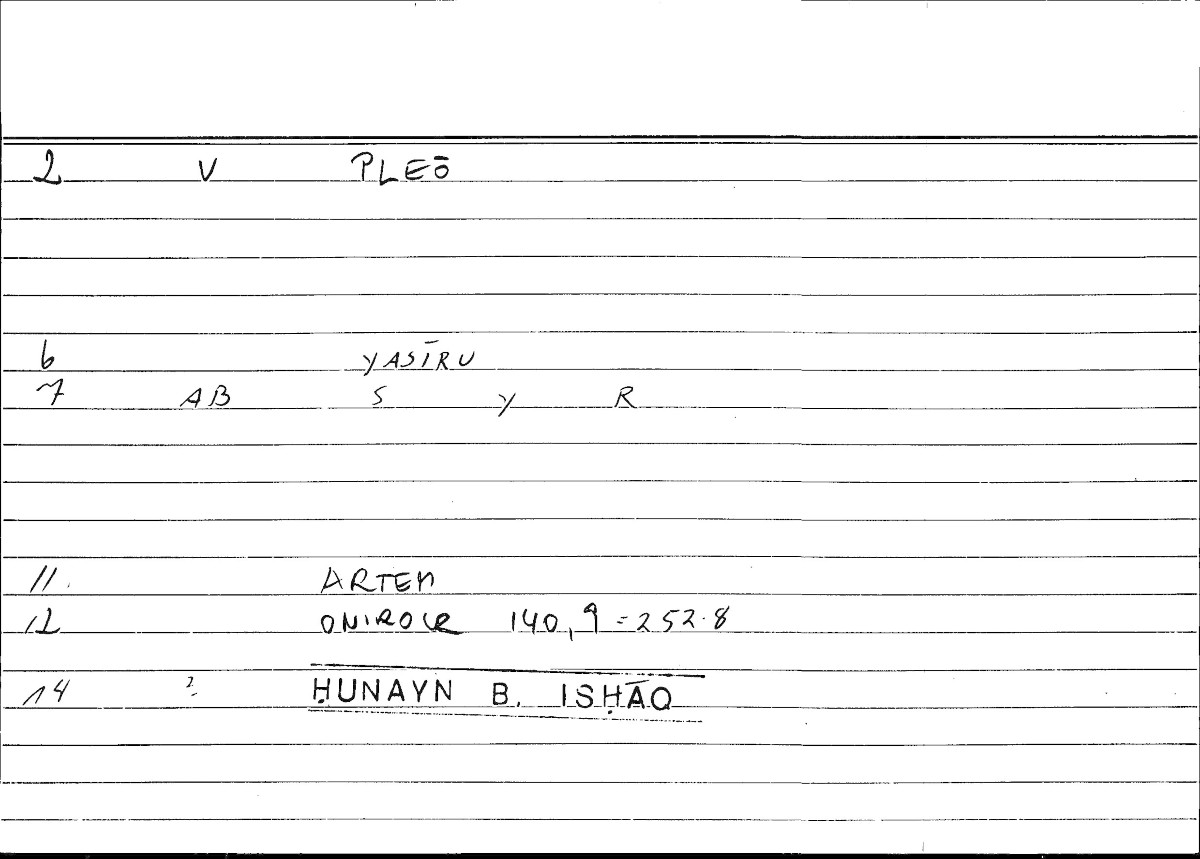 2 V PLEŌ
6 YASĪRU
7 AB S Y R
11 ARTEM
12 ONIROCR 140,9 = 252.8
14 ? ḤUNAYN B. ISḤĀQ